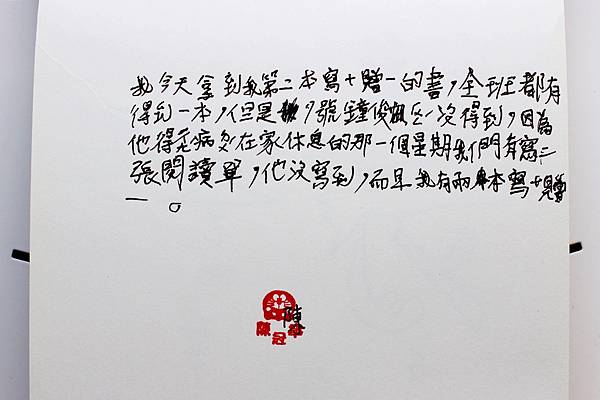 我今天拿到我第二本寫十贈一的書,全班都有
得到一本,但是,號鐘俊沒得到,因為
他得在家休息的那一個星期我們有寫二
張閱讀單,他沒寫到,而且我有兩本寫十贈
一。
陳
陳冠